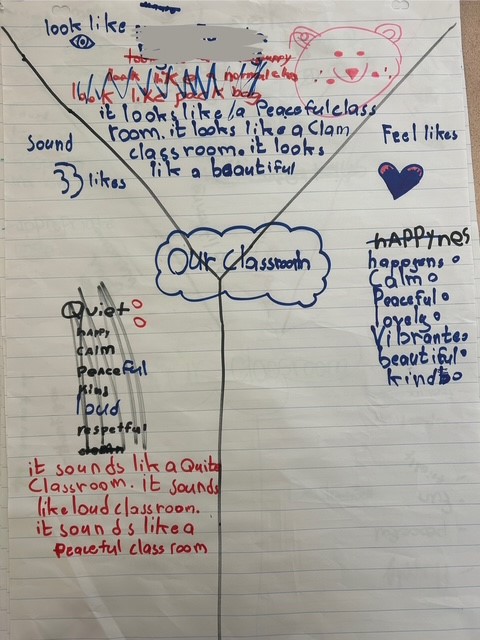 look like
happy
look like a normal class
look like pack bag
it looks like a Peacefulclass
room. it looks like a Clam
classroom. it looks
lik a beautiful
Sound
likes
Feel likes
Our Classroom
hAPPynes
happyens
Calm
Peaceful
lovely
Vibrante
beautiful
kind
Quiet
hAPPY
CAlM
PeACeful
King
loud
respetful
it sounds like a Quite
Classroom. it sounds
like loud classroom.
it sounds like a
Peaceful class room